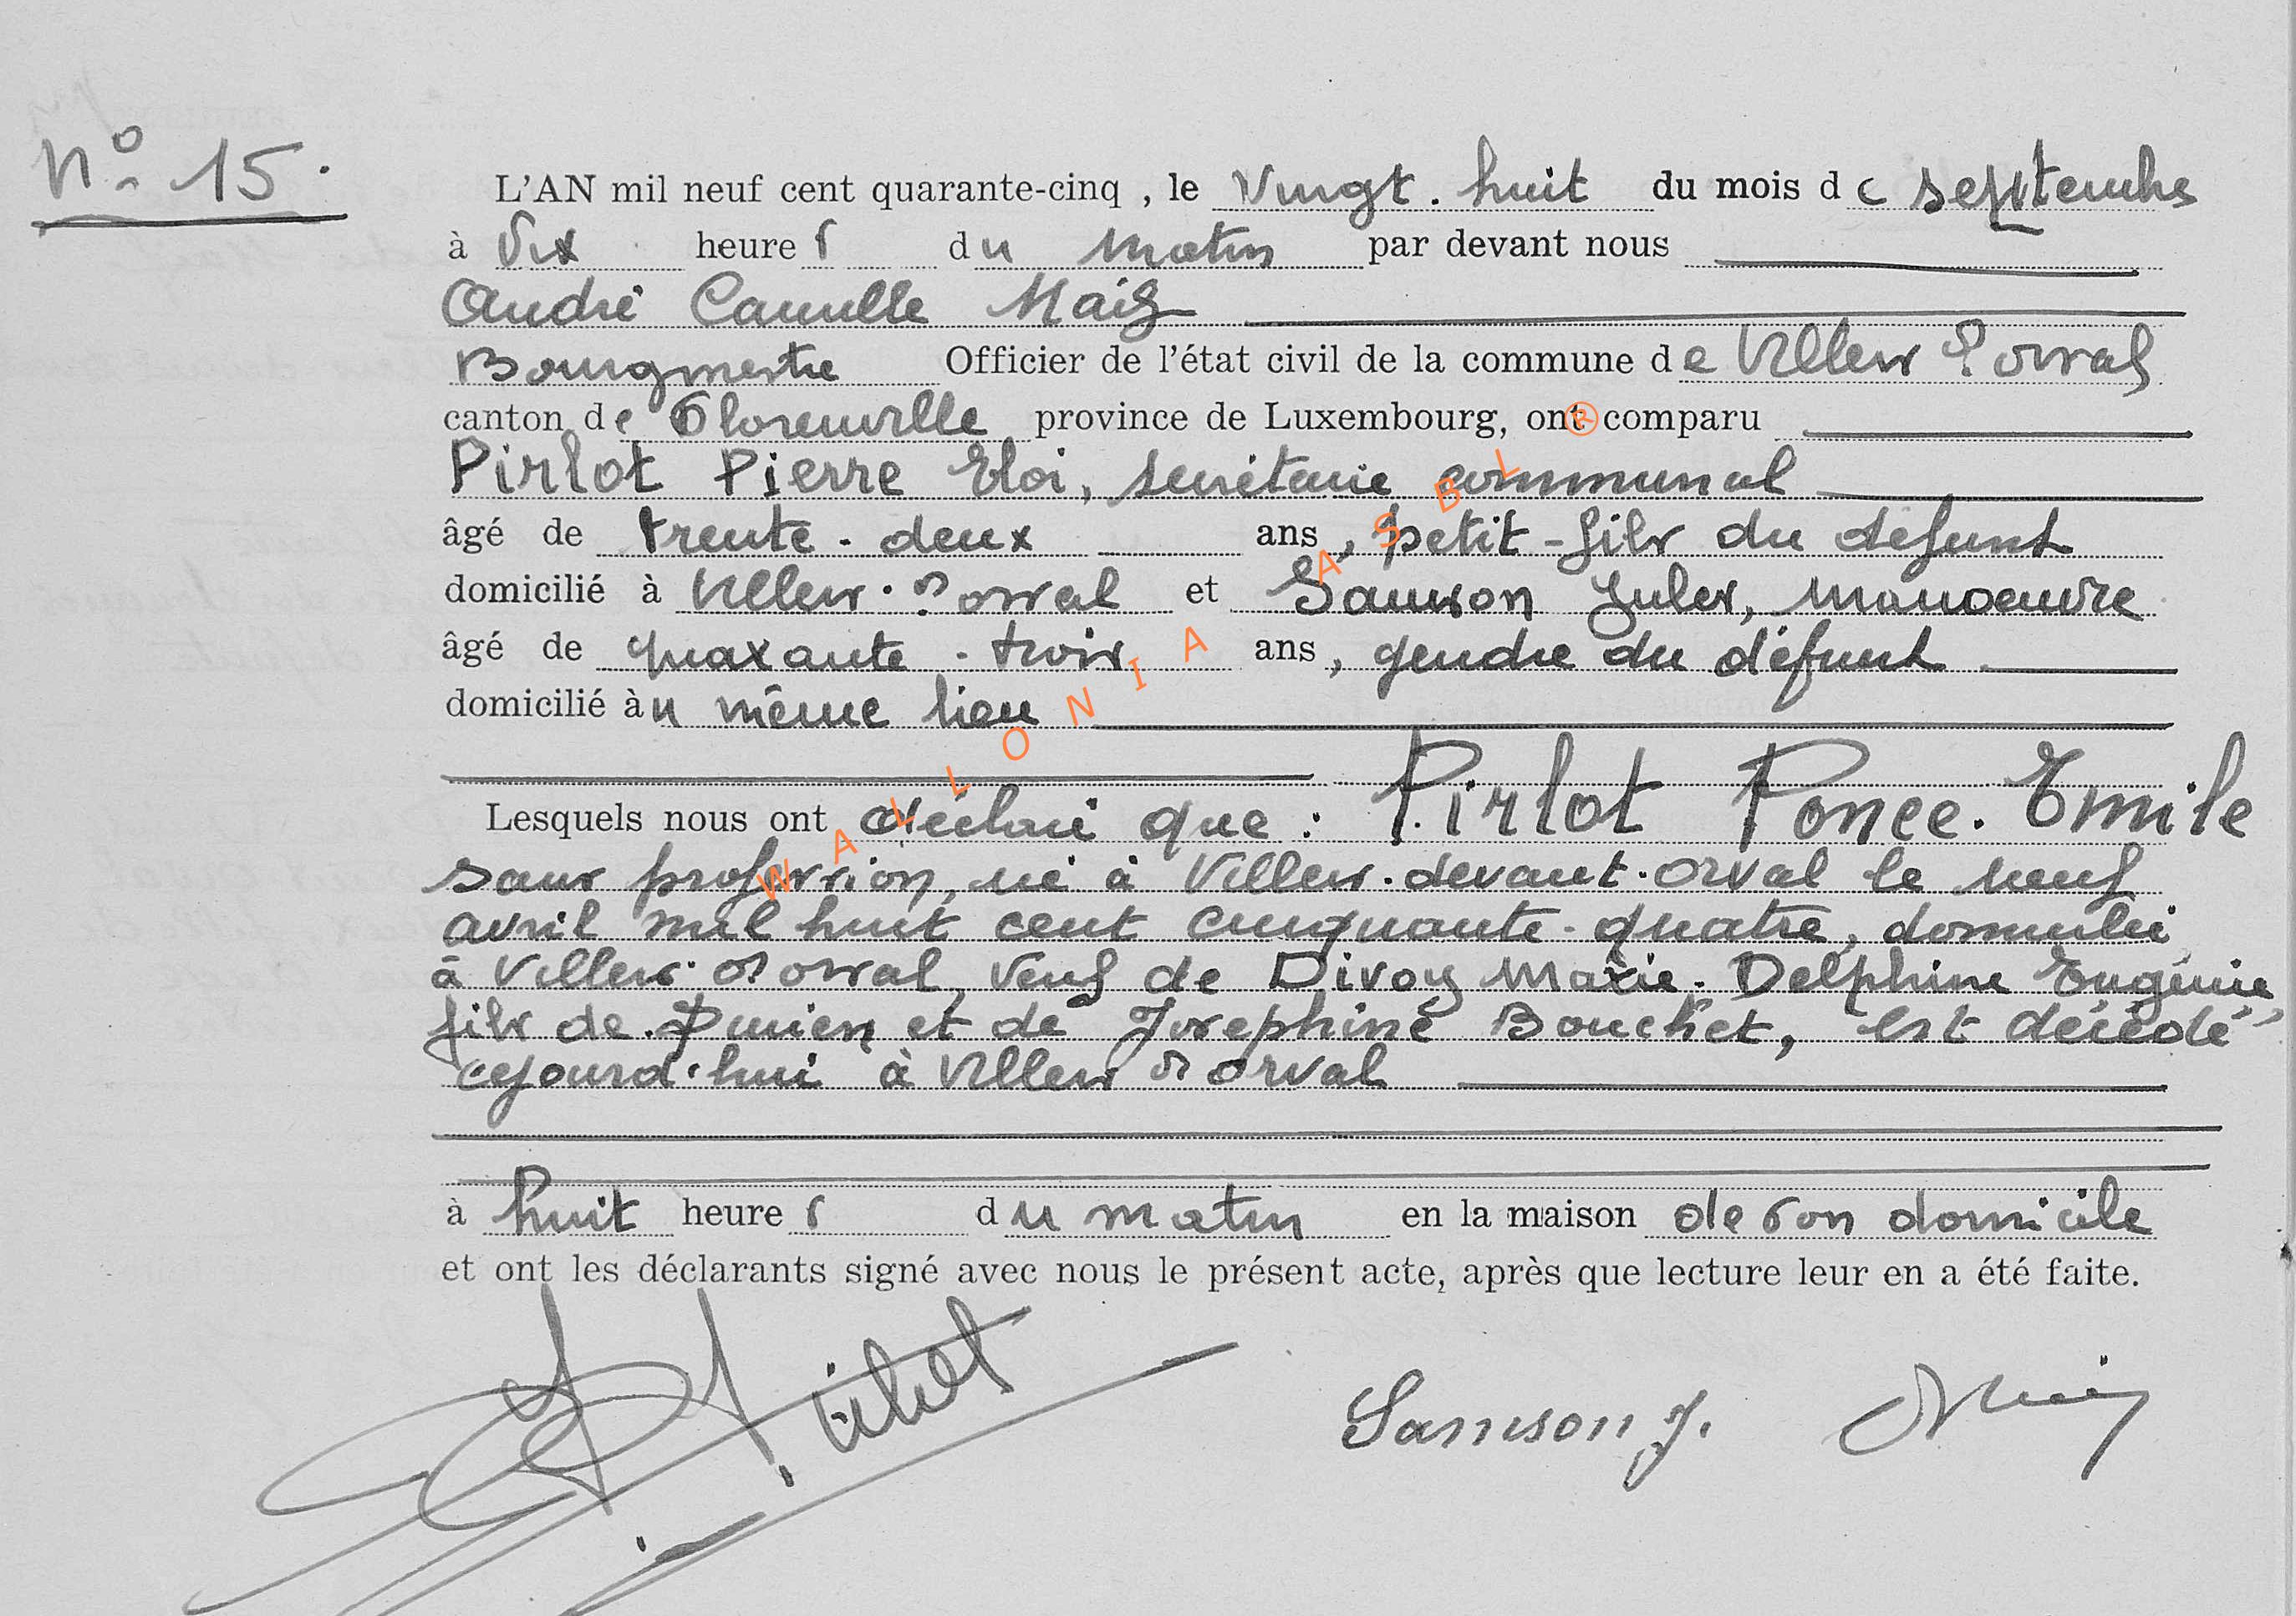 N° 15.
L'AN mil neuf cent quarante-cinq , le Vingt. huit du mois de septembre
à Dix heures du matin par devant nous
André Camille Maig
Bourgmestre Officier de l'état civil de la commune de Villers d' orval
canton de Florenville province de Luxembourg, ont comparu
Pirlot Pierre Eloi, secrétaire communal
âgé de trente-deux ans, petit-fils du défunt
domicilié à Villers. d' orval et Samson Jules, manoeuvre
âgé de quarante-trois ans, gendre du défunt
domicilié au même lieu
Lesquels nous ont déclaré que : Pirlot Ponce. Emile
sans profession, né à Villers-devant-orval le neuf
avril mil huit cent cinquante-quatre, domicilié
à Villers d' orval, veuf de Divoy Marie. Delphine Eugénie,
fils de et de Josephine Bouchet, est décédé
cejourd'hui à Villers d' orval
à huit heures du matin en la maison de son domicile
et ont les déclarants signé avec nous le présent acte, après que lecture leur en a été faite.
Pirlot Samson J.
WALLONIA ASBL ®